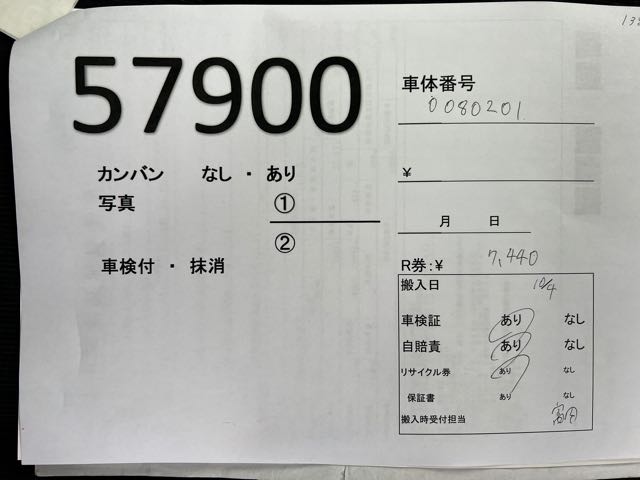 57900
車体番号
0080201
カンバン なし ・ あり
¥
写真 ①
②
月 日
車検付 ・ 抹消
R券:¥ 7,440
搬入日 10/4
車検証 あり なし
自賠責 あり なし
リサイクル券 あり なし
保証書 あり なし
搬入時受付担当